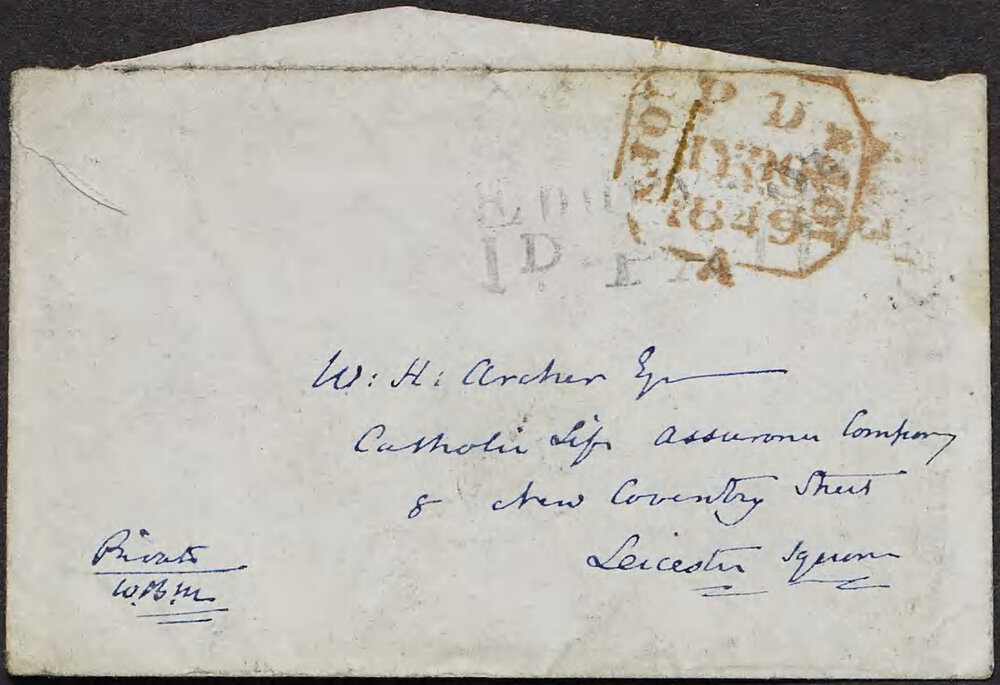 P D
1849
A
1D PAID
W: H: Archer Esqr
Catholic Life Assurance Company
8 New Coventry Street
Leicester Square
Private
W.B.M.